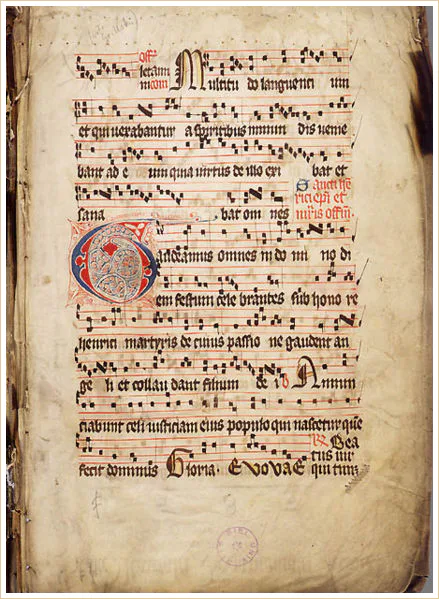 offr
letamini com Multitu do languenti um
et qui vexabantur a spiritibus immun dis venie
bant ad e um quia virtus de illo exi bat et
sana bat om nes Sancti he
rici epi et
mris offm.
Gaudeamus omnes in do mi no di
em festum cele brantes sub hono re
henrici martyris de cuius passio ne gaudent an
ge li et collau dant filium de i Annun
ciabunt celi iusticiam eius populo qui nascetur que
fecit dominus Gloria. EVOVAE Bea
tus vir
qui tim